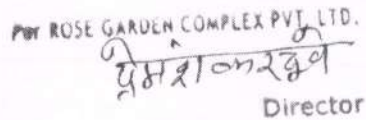 For ROSE GARDEN COMPLEX PVT. LTD.
प्रेमशंकर दुबे
Director